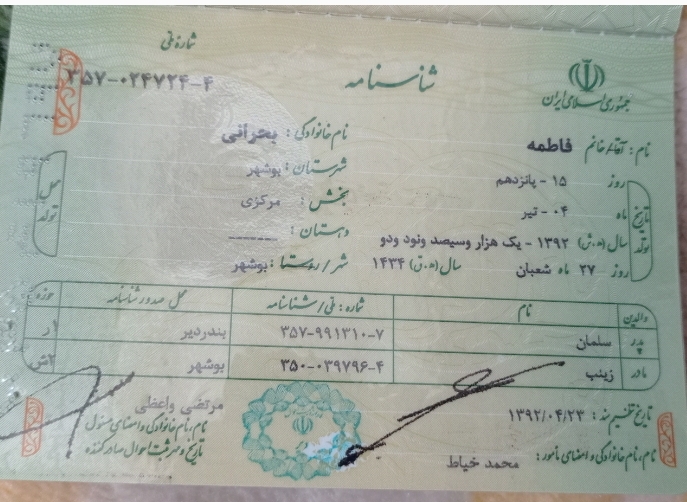 شماره ملی
۳۵۷-۰۲۴۷۲۴-۴
شناسنامه
جمهوری اسلامی ایران
نام: آقا/خانم فاطمه
نام خانوادگی: بحرانی
تاریخ تولد
روز ۱۵ - پانزدهم
ماه ۰۴ - تیر
سال (ه.ش) ۱۳۹۲ - یک هزار وسیصد ونود ودو
روز ۲۷ ماه شعبان سال (ه.ق) ۱۴۳۴
محل تولد
شهرستان: بوشهر
بخش: مرکزی
دهستان: -------
شهر/روستا: بوشهر
والدین نام شماره: ملی/شناسنامه محل صدور شناسنامه حوزه
پدر سلمان ۳۵۷-۹۹۱۳۱۰-۷ بندردیر ۱ر
مادر زینب ۳۵۰-۰۳۹۷۹۶-۴ بوشهر ۲ش
تاریخ تنظیم سند: ۱۳۹۲/۰۴/۲۳
نام، نام خانوادگی و امضای مأمور: محمد خیاط
مرتضی واعظی
نام، نام خانوادگی و امضای مسئول
تاریخ و مهر ثبت احوال صادرکننده